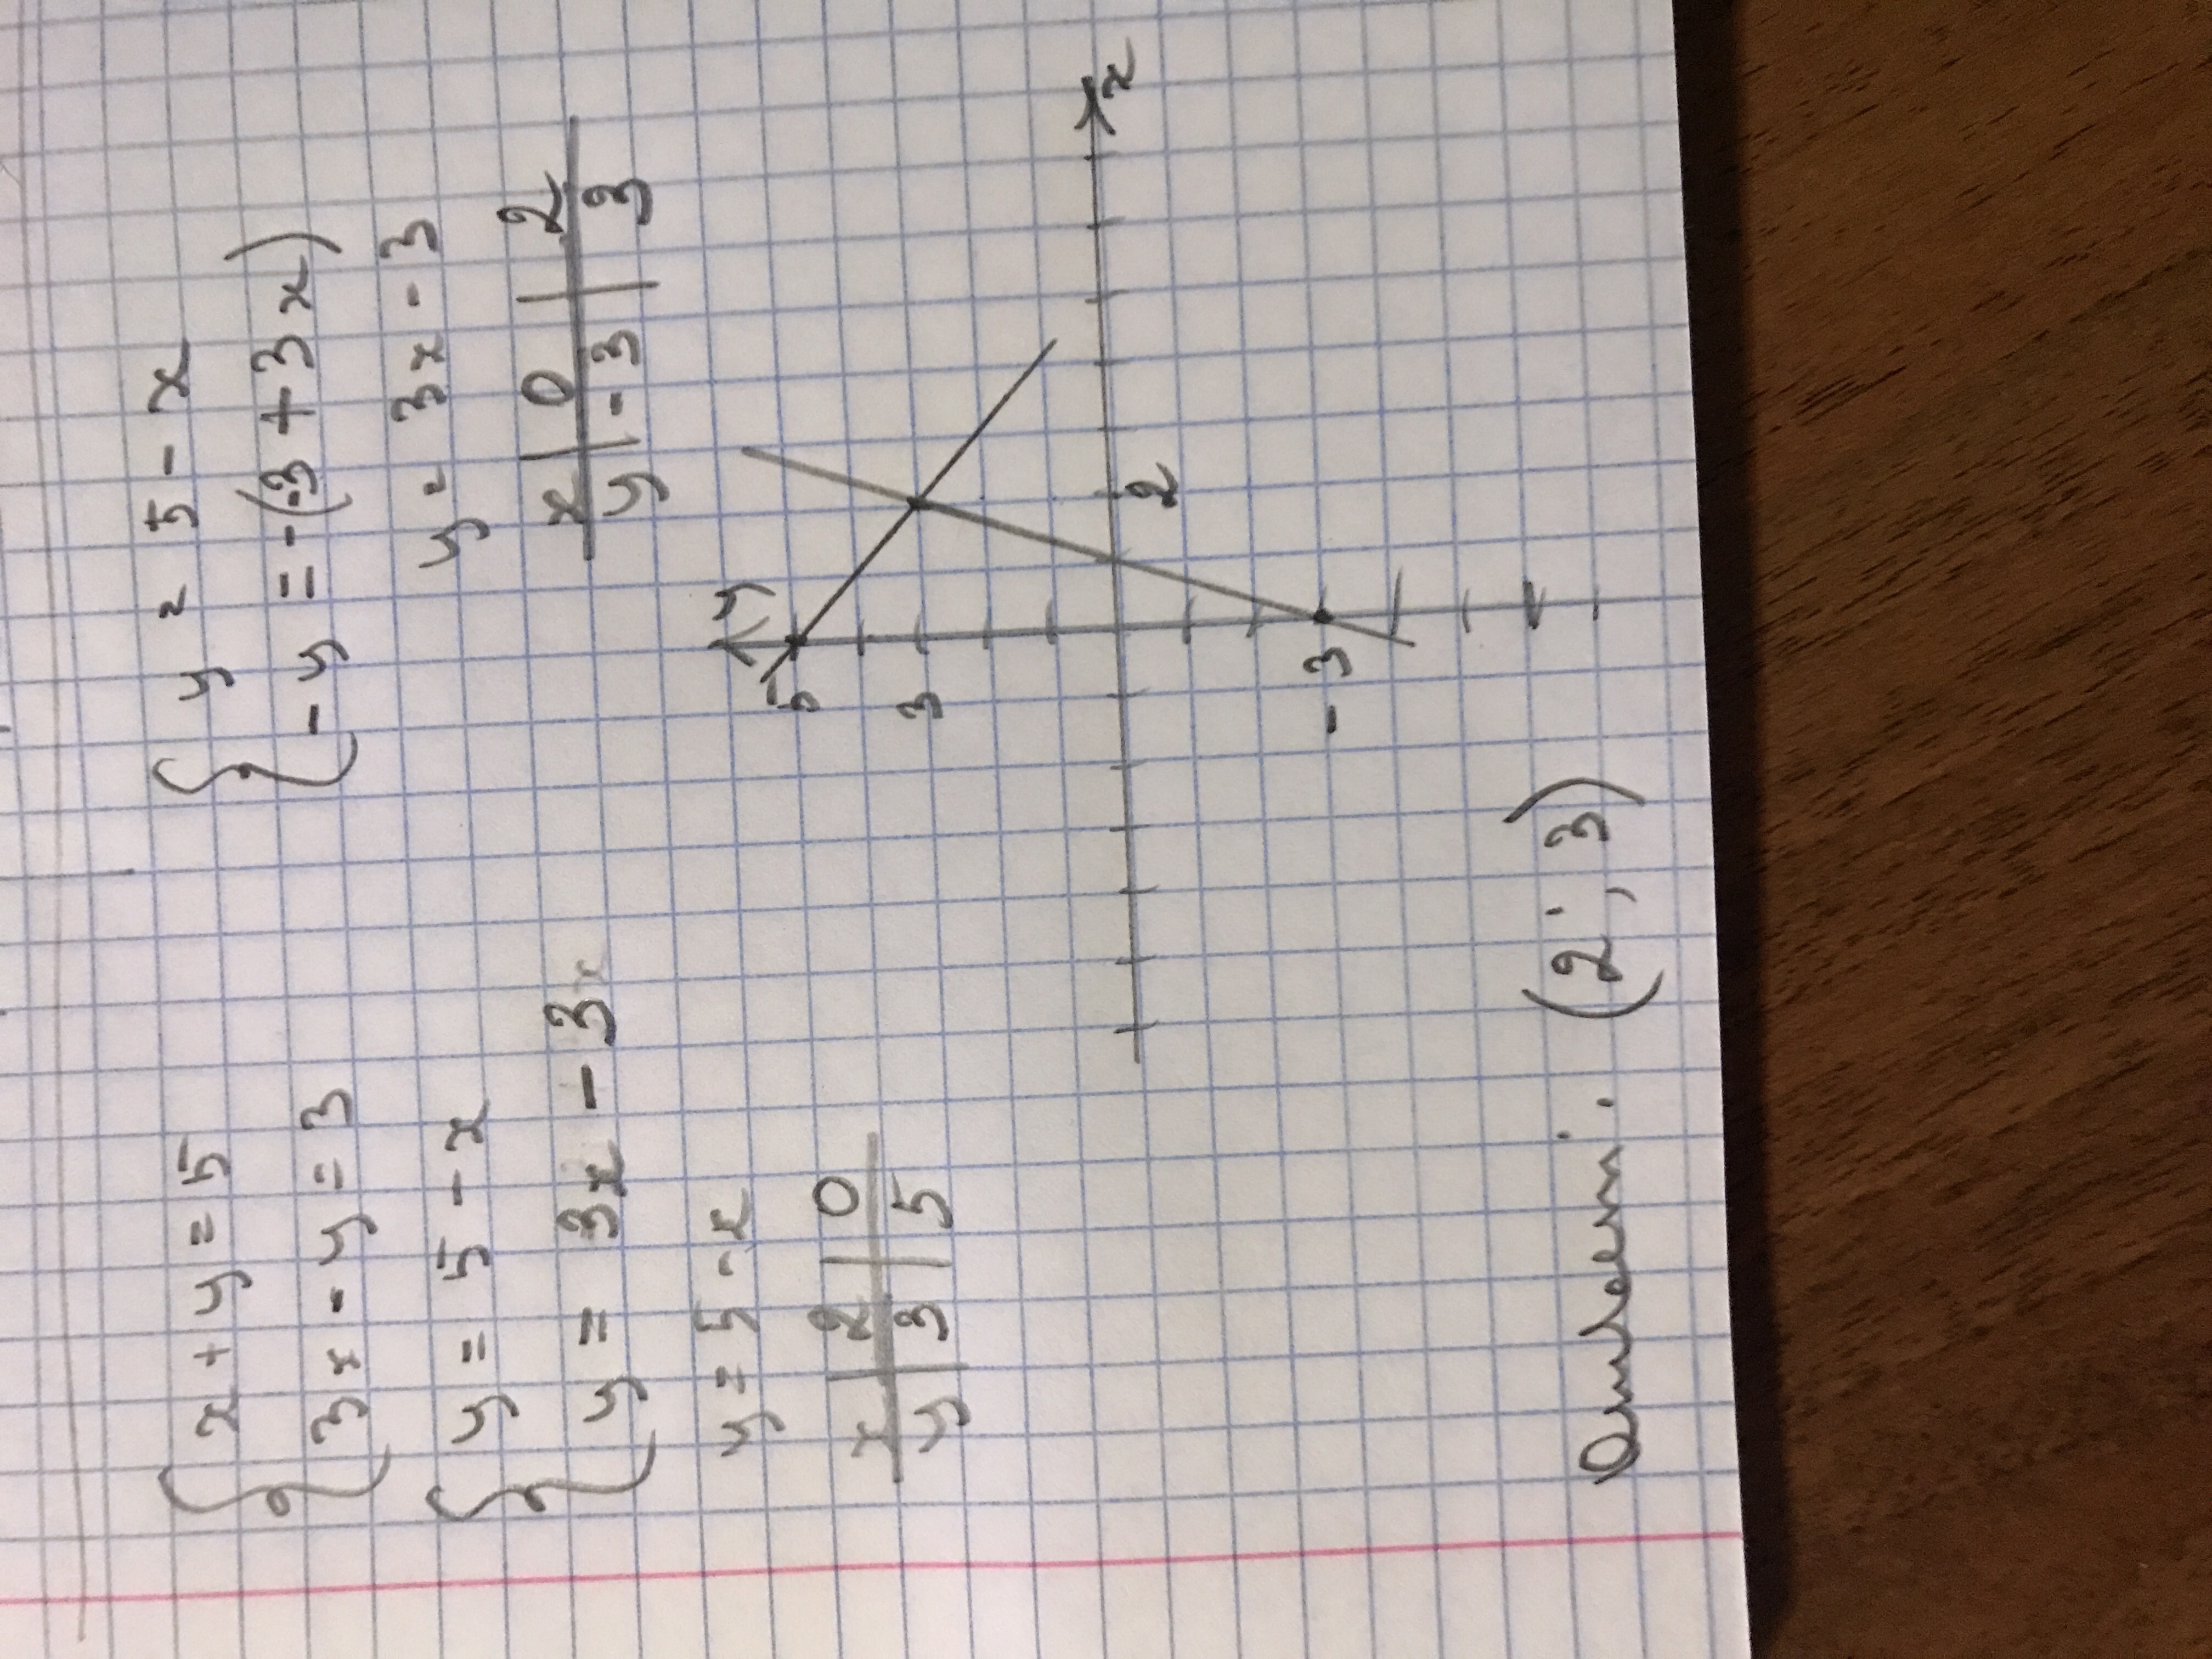 x + y = 5
3x - y = 3
y = 5 - x
y = 3x - 3
y = 5 - x
x | 2 | 0
y | 3 | 5
y = 5 - x
- y = -(3 + 3x)
y = 3x - 3
x | 0 | 2
y | -3 | 3
y
5
3
2
x
-3
(2; 3)